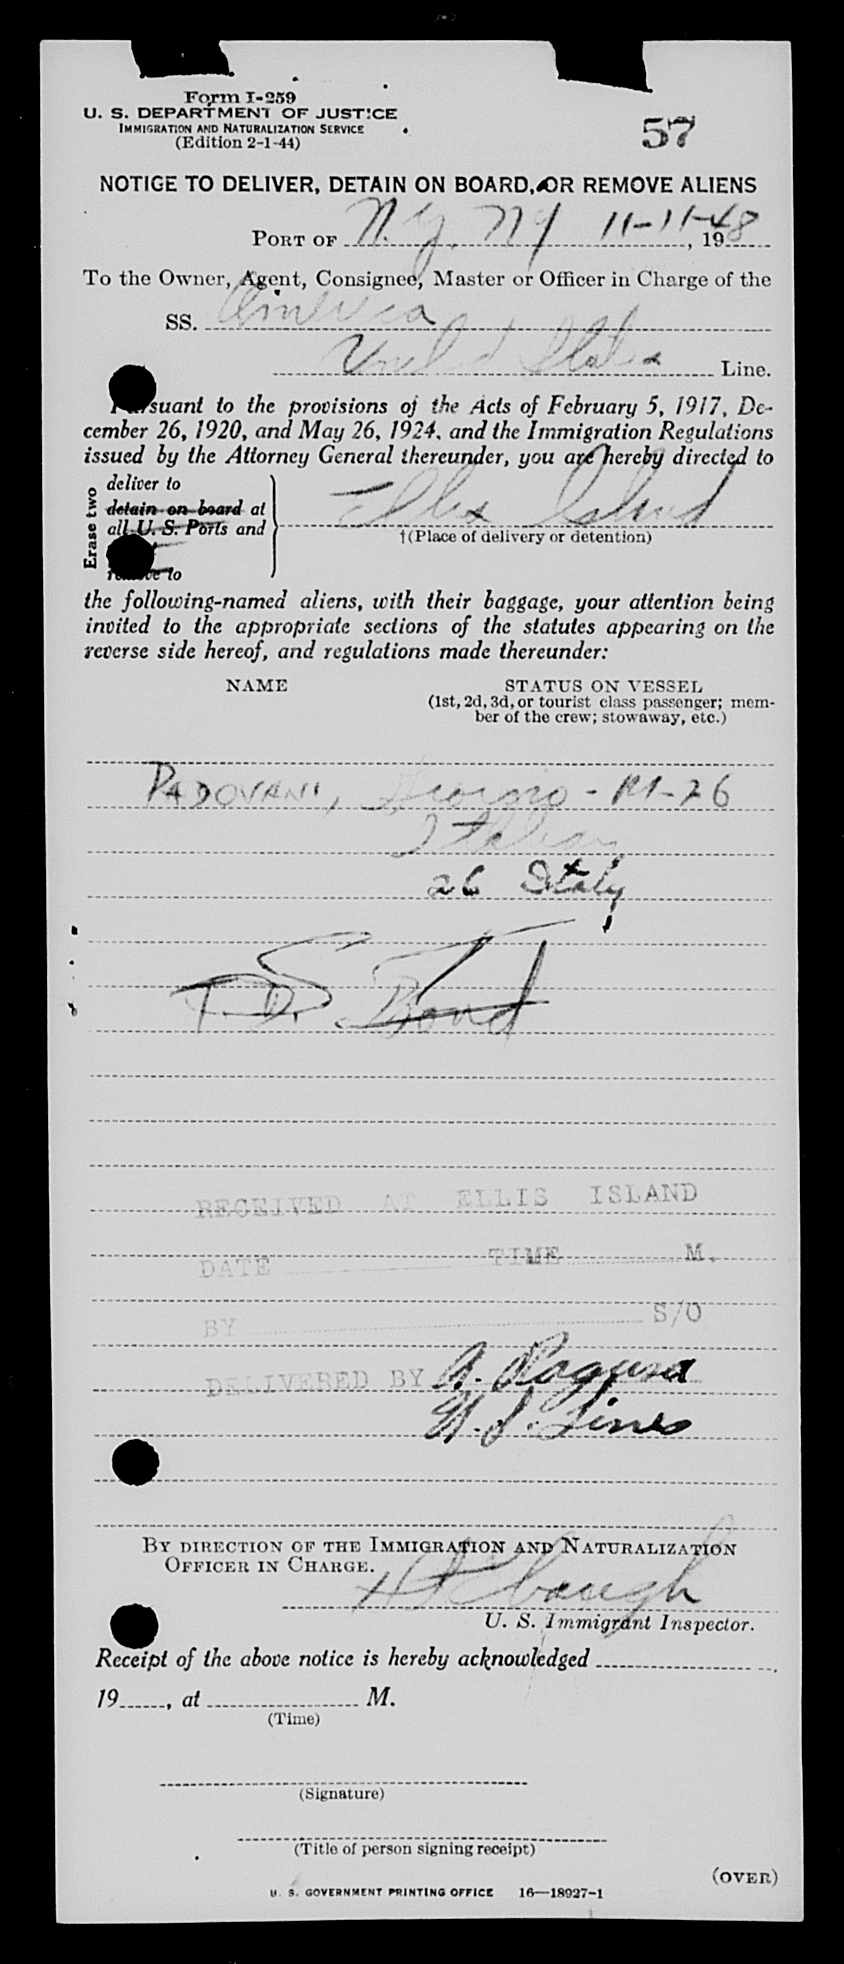 Form I-259
U. S. DEPARTMENT OF JUSTICE
IMMIGRATION AND NATURALIZATION SERVICE
(Edition 2-1-44)
57
NOTICE TO DELIVER, DETAIN ON BOARD, OR REMOVE ALIENS
PORT OF N.Y. NY 11-11-48, 19
To the Owner, Agent, Consignee, Master or Officer in Charge of the
SS. America
United States Line.
Pursuant to the provisions of the Acts of February 5, 1917, De-
cember 26, 1920, and May 26, 1924, and the Immigration Regulations
issued by the Attorney General thereunder, you are hereby directed to
Erase two
deliver to
detain on board at
all U. S. Ports and
remove to
Ellis Island
†(Place of delivery or detention)
the following-named aliens, with their baggage, your attention being
invited to the appropriate sections of the statutes appearing on the
reverse side hereof, and regulations made thereunder:
NAME STATUS ON VESSEL
(1st, 2d, 3d, or tourist class passenger; mem-
ber of the crew; stowaway, etc.)
PADOVANI, - M-26
Italian
26 Italy
Bond
RECEIVED AT ELLIS ISLAND
DATE TIME M.
BY S/O
DELIVERED BY A. Ragusa
U.S. Lines
BY DIRECTION OF THE IMMIGRATION AND NATURALIZATION
OFFICER IN CHARGE.
U. S. Immigrant Inspector.
Receipt of the above notice is hereby acknowledged
19, at M.
(Time)
(Signature)
(Title of person signing receipt)
(OVER)
U. S. GOVERNMENT PRINTING OFFICE 16—18927-1